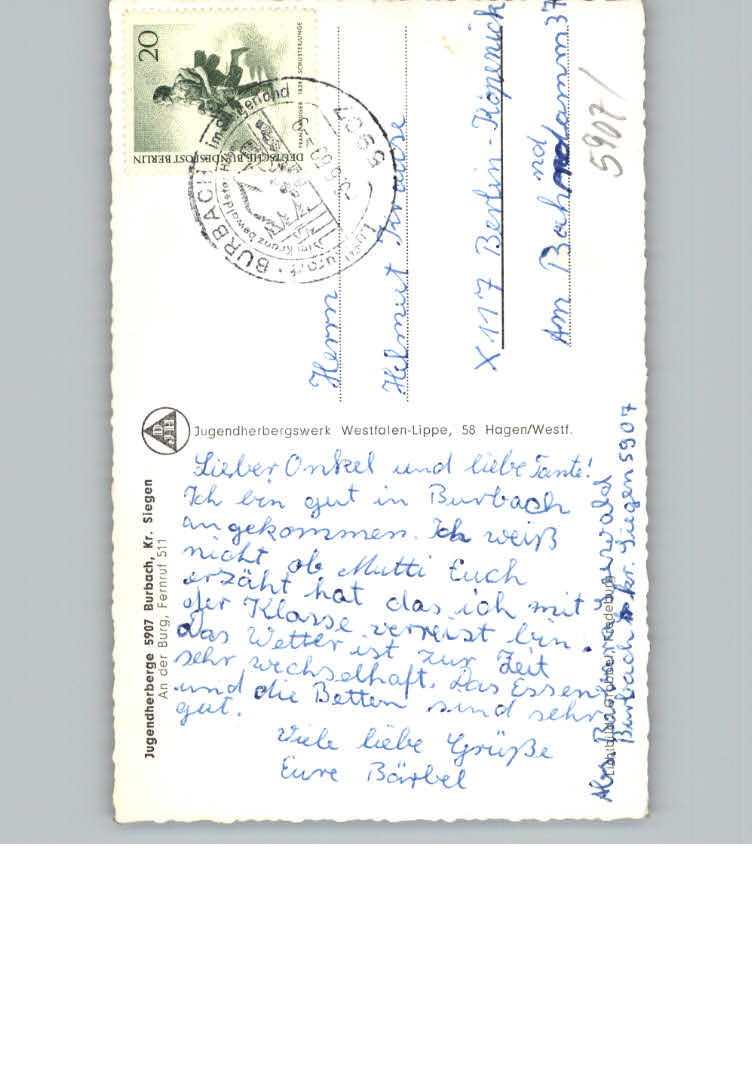 20
DEUTSCHE BUNDESPOST BERLIN
1839 SCHUSTERJUNGE
BURBACH
5907
Herrn
Helmut Krause
X 117 Berlin-Köpenick
Am Bahndamm 37
nd
5907/
DJH
Jugendherbergswerk Westfalen-Lippe, 58 Hagen/Westf.
Jugendherberge 5907 Burbach, Kr. Siegen
An der Burg, Fernruf 511
Lieber Onkel und liebe Tante!
Ich bin gut in Burbach
angekommen. Ich weiß
nicht ob Mutti Euch
erzäht hat das ich mit
der Klasse verreist bin.
Das Wetter ist zur Zeit
sehr wechselhaft. Das Essen
und die Betten sind sehr
gut.
Viele liebe Grüße
Eure Bärbel
Abs. Bärbel
Burbach kr. Siegen 5907